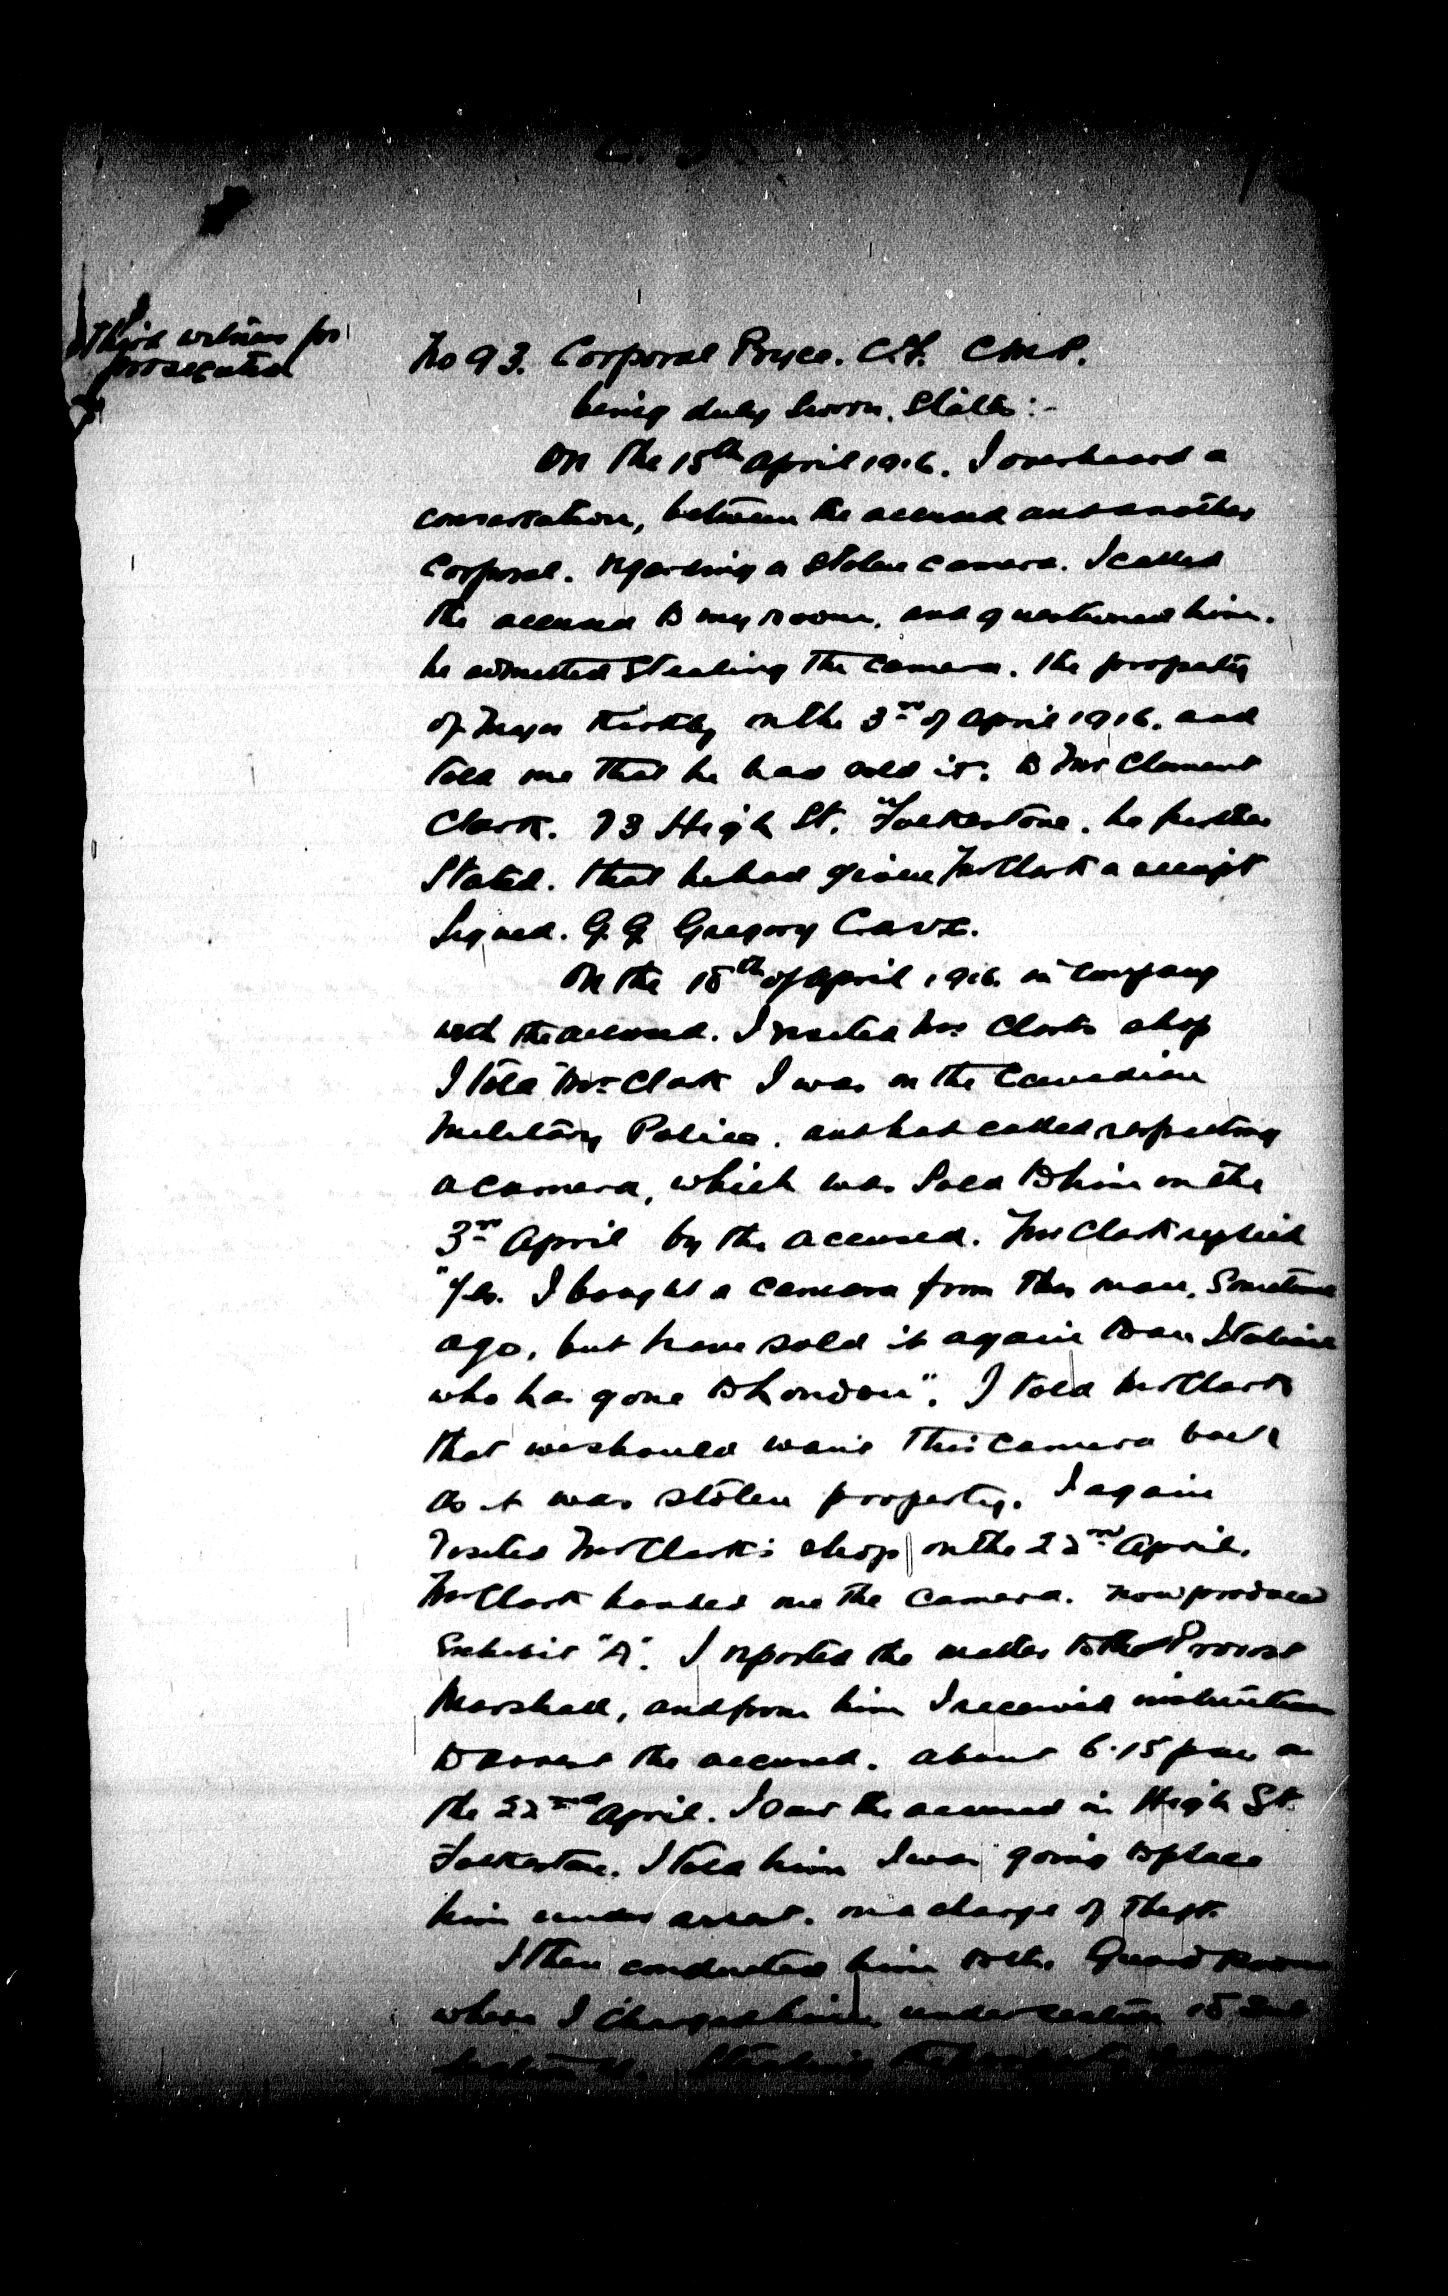 Third witness for
prosecution
No 93. Corporal Pryce. C.F. C.M.P.
being duly sworn. States:-
On the 15th April 1916. I overheard a
conversation, between the accused and another
Corporal. regarding a stolen camera. I called
the accused to my room. and questioned him.
he admitted stealing the camera. the property
of Major Kirkby on the 3rd of April 1916. and
told me that he had sold it. to Mr Clement
Clark. 73 High St. Folkestone. he further
Stated. that he had given Mr Clark a receipt
Signed. G. G. Gregory
On the 18th of April 1916. in company
with the accused. I visited Mr. Clarks shop
I told Mr. Clark I was in the Canadian
Military Police. and had called respecting
a camera, which was sold to him on the
3rd April by the accused. Mr Clark replied
"Yes. I bought a camera from this man. Sometime
ago, but have sold it again to an Italian
who has gone to London". I told Mr Clark
that we should want this camera back
as it was stolen property. I again
Visited Mr Clark's shop on the 22nd April.
Mr Clark handed me the camera. now produced
Exhibit "A". I reported the matter to the Provost
Marshall, and from him I received instructions
to arrest the accused. about 6.15 pm on
the 22nd April. I saw the accused in High St.
Folkestone. I told him I was going to place
him under arrest. on a charge of theft.
I then conducted him to the Guard Room
where I charged him. under section 18 Sub
Section 4. Stealing the property